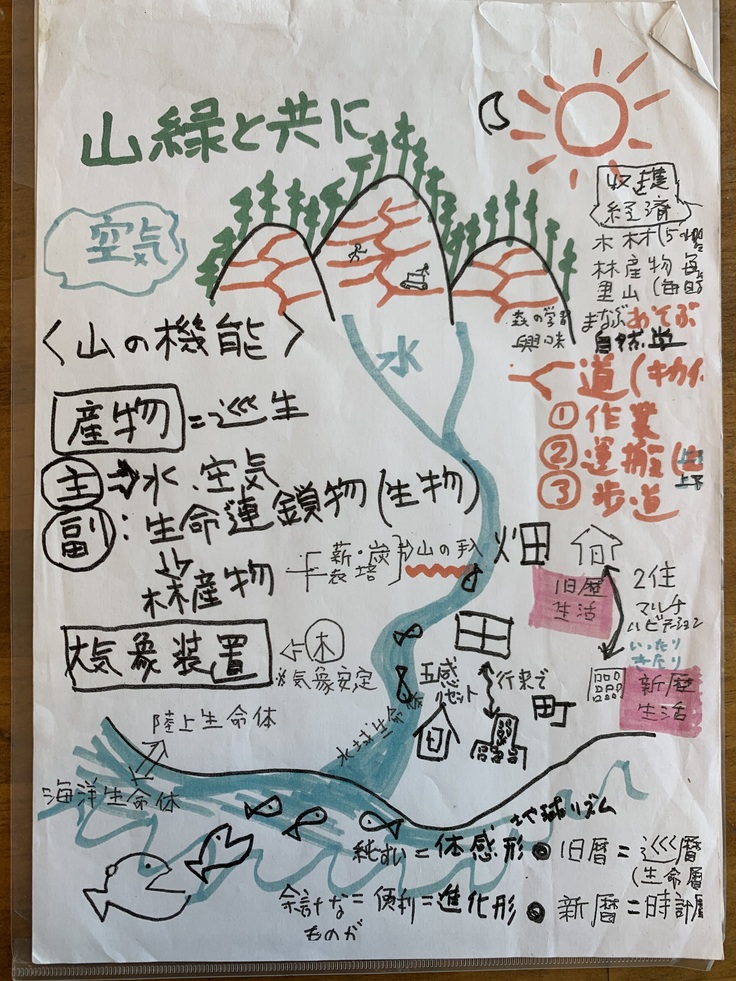 山緑と共に
空気
収穫
経済
木材
林産物
里山
まなぶ あそぶ
自然学
森の学習
興味
水
〈山の機能〉
道(キカイ
①作業
②運搬
③歩道
産物=巡生
主⇒水.空気
副:生命連鎖物(生物)
林産物
薪・炭
栽培
山の手入
畑
旧暦
生活
2住
マルチ
ハビテーション
いったり
きたり
新暦
生活
大気象装置
木
※気象安定
五感
リセット
行来で
町
水域生命
陸上生命体
海洋生命体
地球リズム
純すい=体感形●旧暦=巡暦
(生命暦
余計な=便利=進化形●新暦=時計暦
ものが